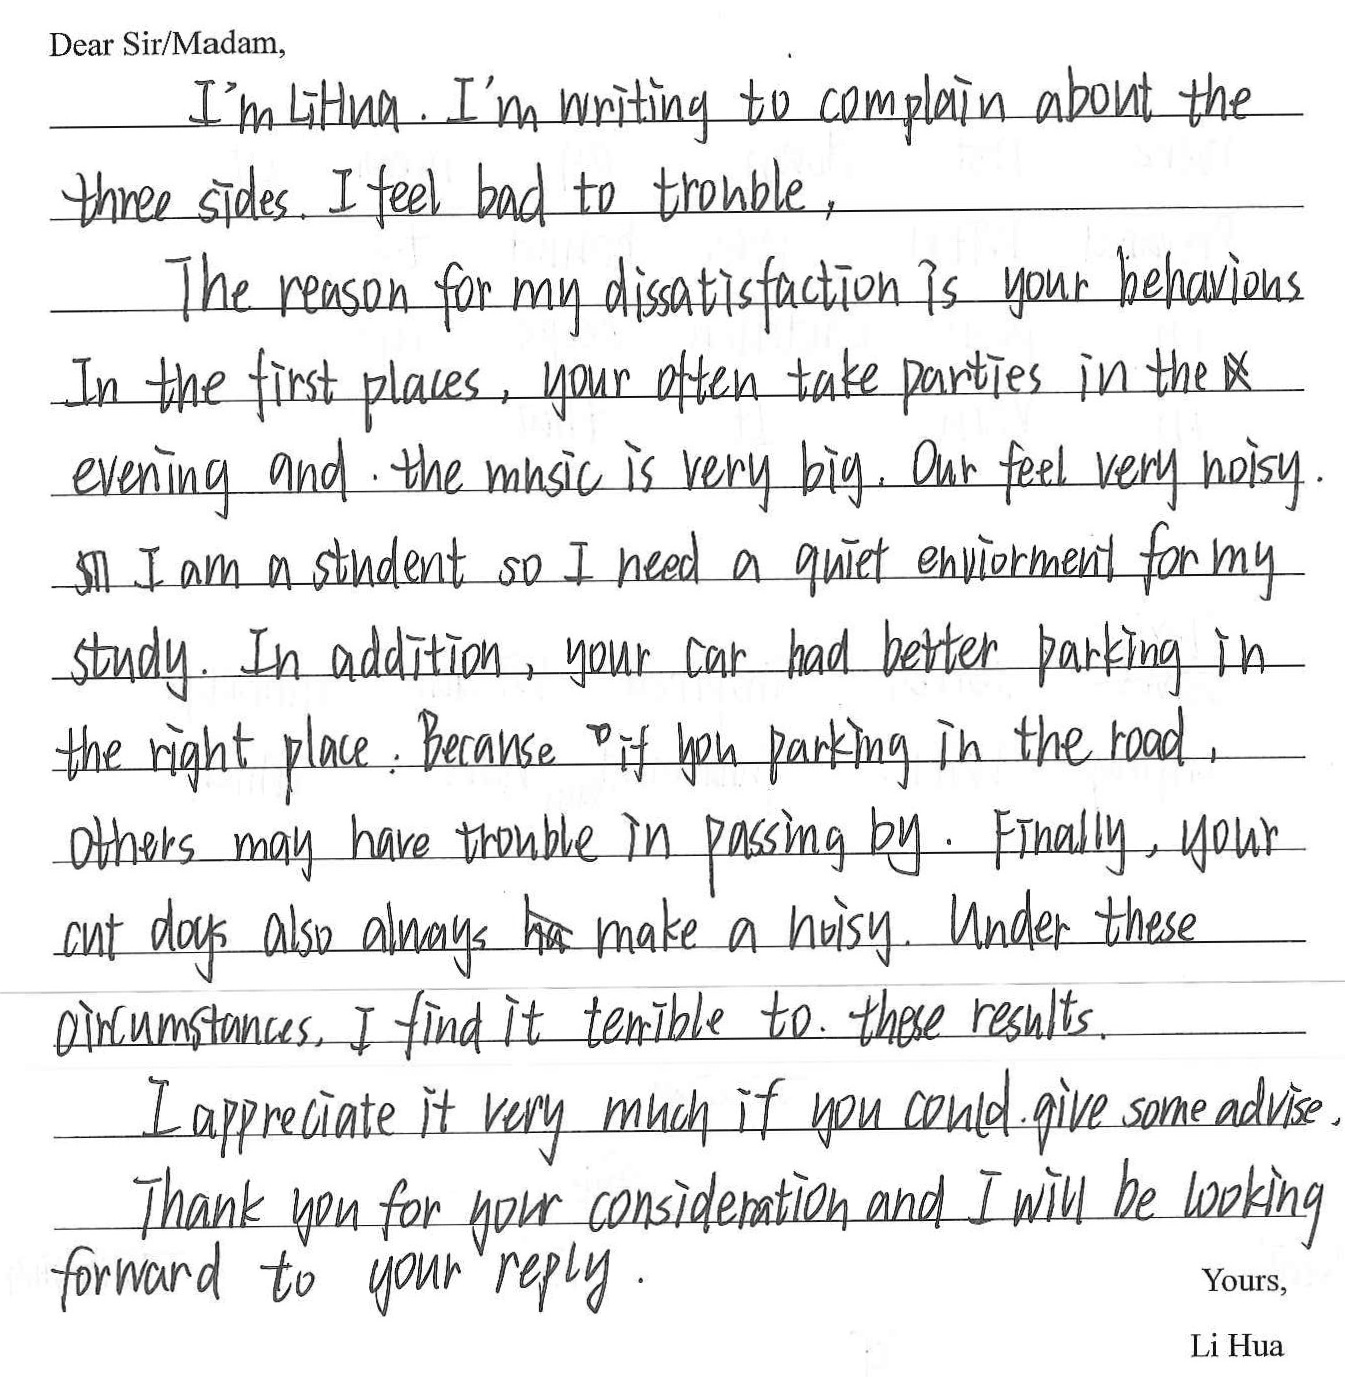 Dear Sir/Madam,
I'm LiHua. I'm writing to complain about the
three sides. I feel bad to trouble,
The reason for my dissatisfaction is your behavious
In the first places, your often take parties in the
evening and . the music is very big. Our feel very noisy.
I am a student so I need a quiet enviorment for my
study. In addition, your car had better parking in
the right place. Because if you parking in the road,
others may have trouble in passing by. Finally, your
cut dogs also always make a noisy. Under these
circumstances, I find it terrible to. these results.
I appreciate it very much if you could. give some advise.
Thank you for your consideration and I will be looking
forward to your reply.
Yours,
Li Hua